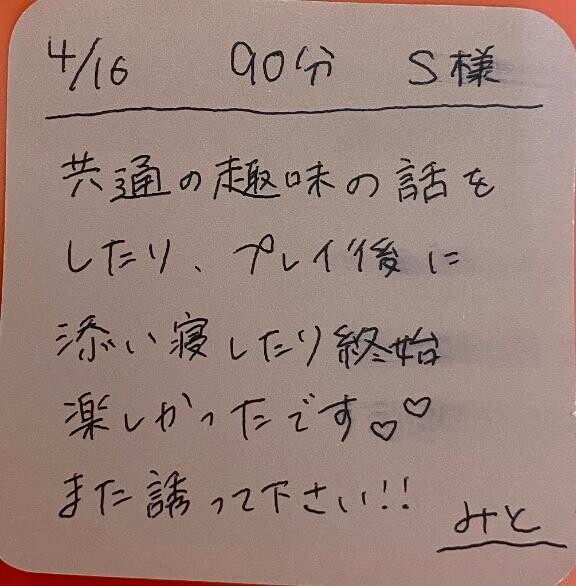 4/16 90分 S様
共通の趣味の話を
したり、プレイ後に
添い寝したり終始
楽しかったです♡♡
また誘って下さい!!
みと